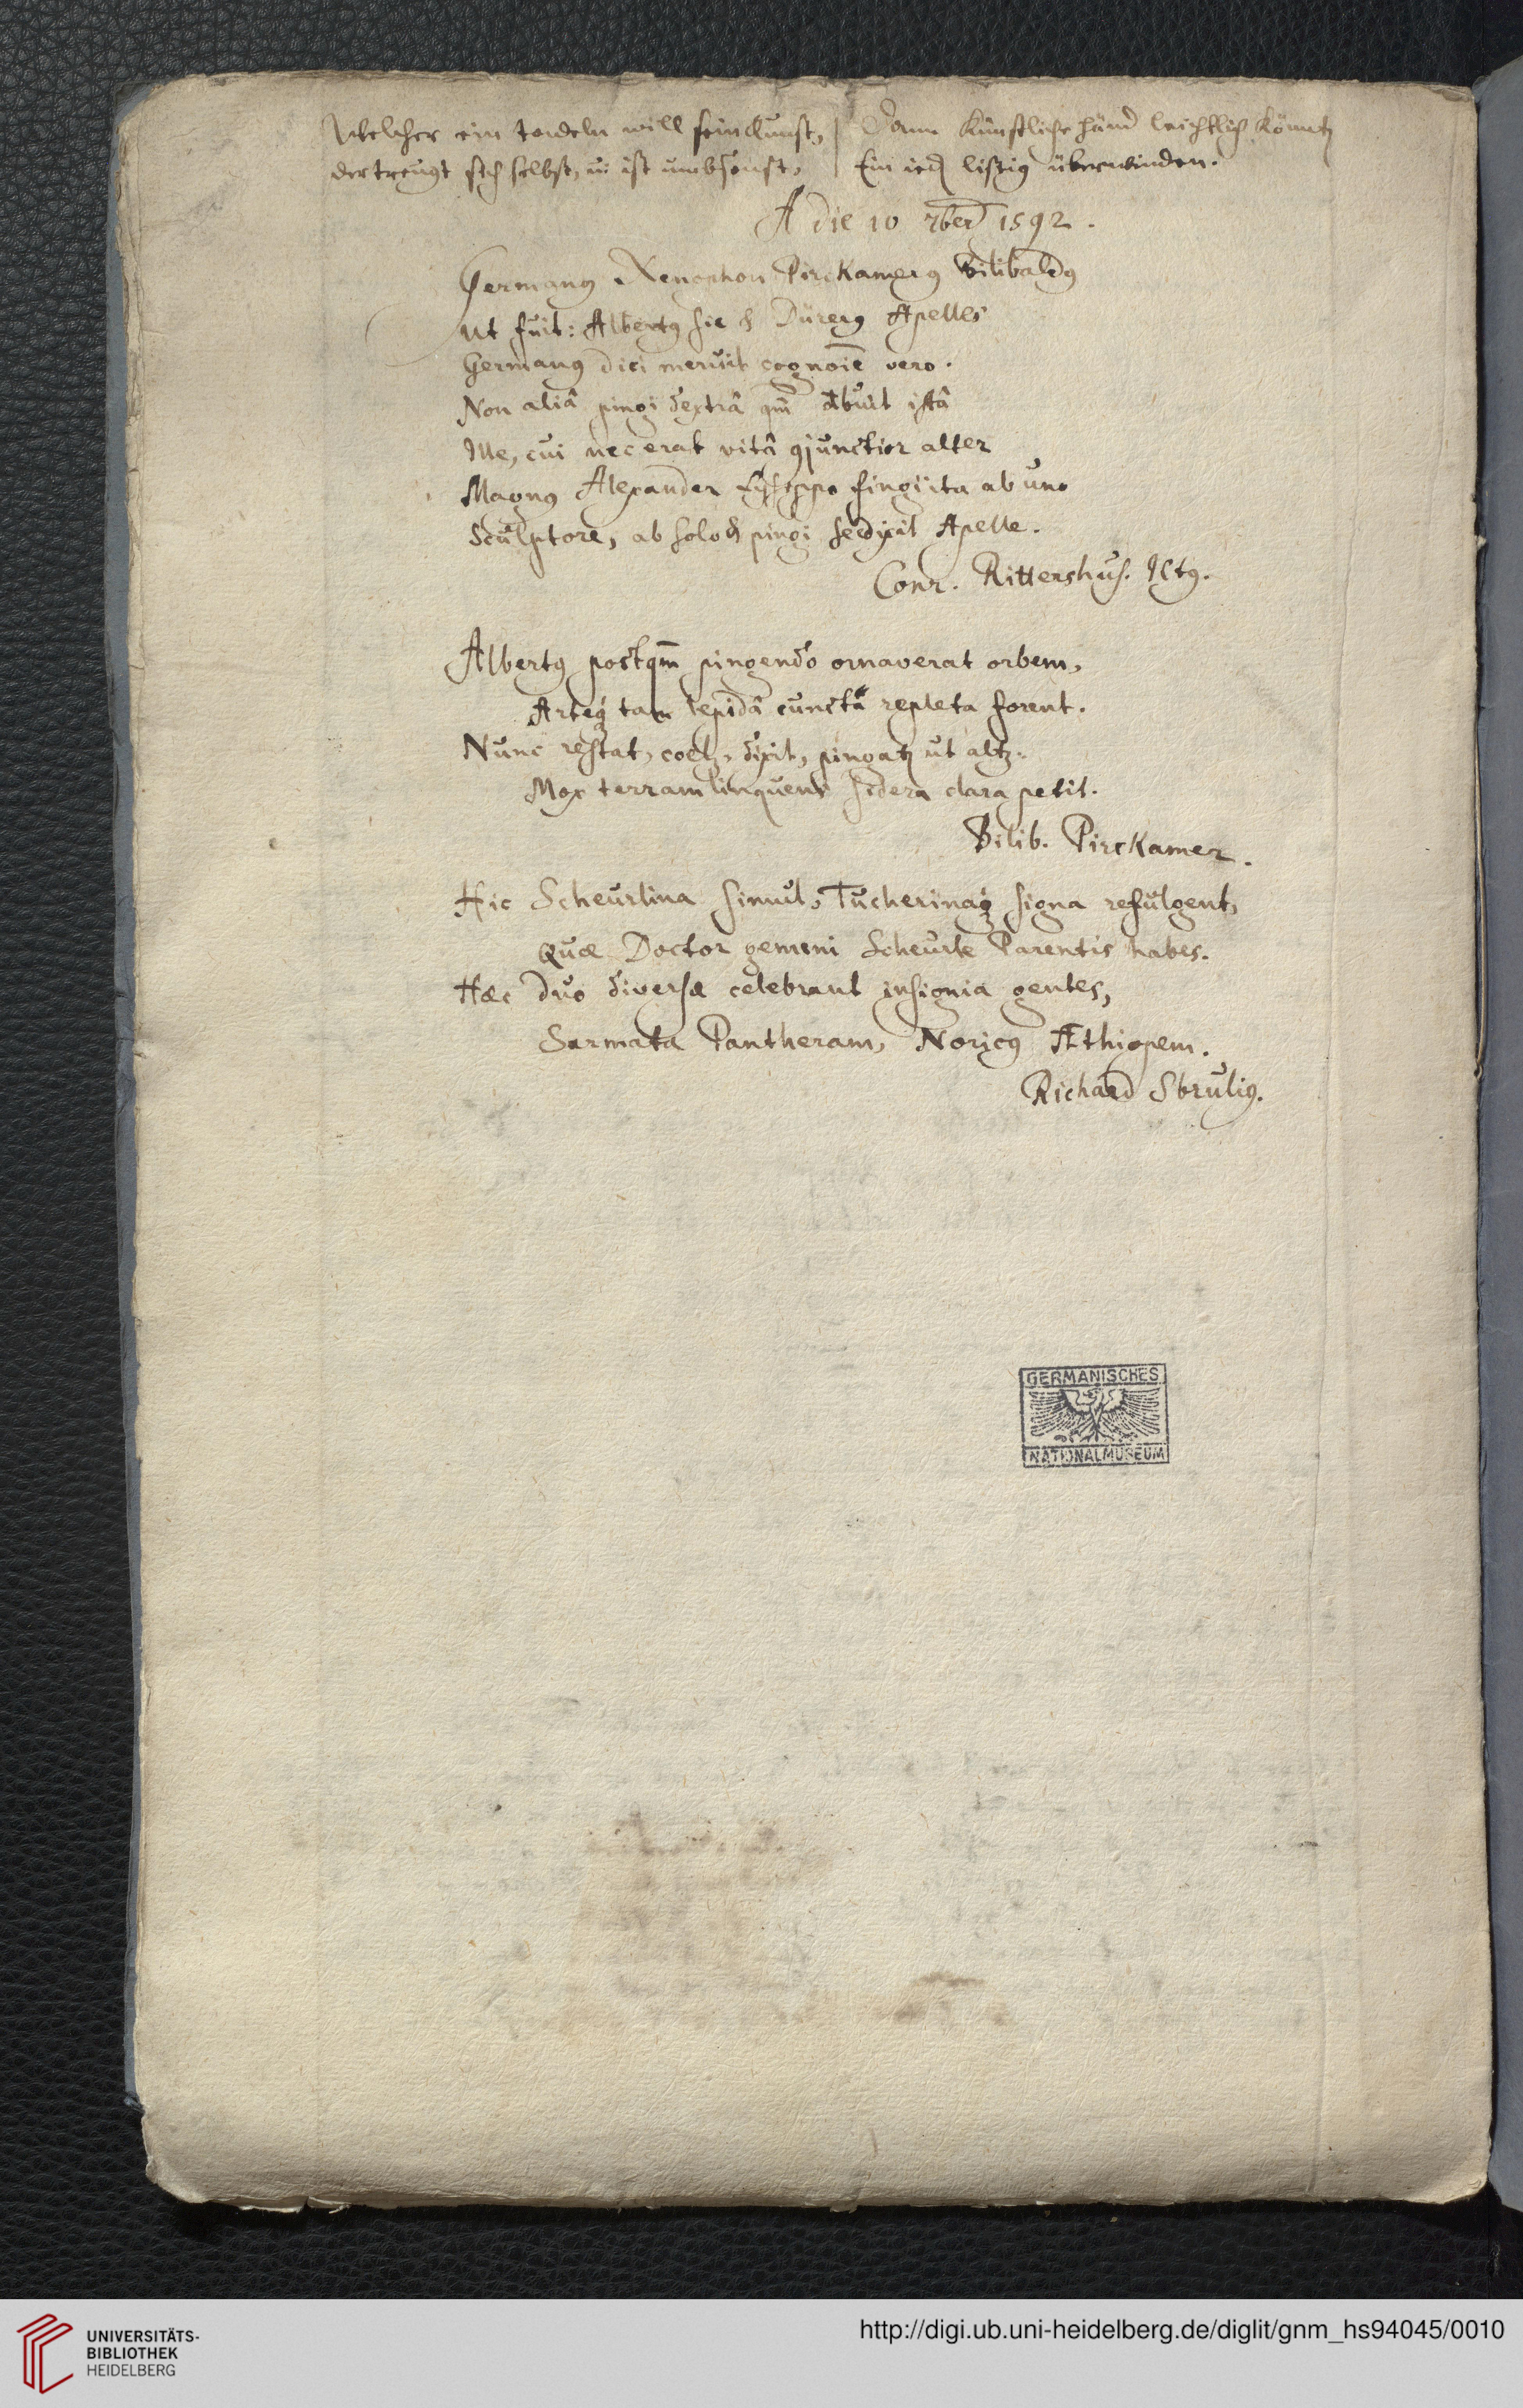 Welcher ein tadeln will sein Kunst, | Dann künstliche händ leichtlich können
der treugt sich selbst, ū ist umbsonst, | Ein ied listig überwinden.
A die 10 7ber 1592.
Germanꝰ Xenophon Pirckamerꝰ Bilibaldꝰ
Ut fuit: Albertꝰ sic & Dürerꝰ Apelles
Germanꝰ dici meruit cognoīe vero.
Non aliâ pingi dextrâ qm̄ debuit istâ
Ille, cui nec erat vitâ ꝯjunctior alter
Magnꝰ Alexander Lysippo fingi ita ab uno
Sculptore, ab solo & pingi se dixit Apelle.
Conr. Rittershus. ICtꝰ.
Albertꝰ postqm̄ pingendo ornaverat orbem,
Arteq́ tam lepidâ cuncta repleta forent.
Nunc restat, coelꝫ, dixit, pingatꝫ ut altꝫ.
Mox terram linquens sidera clara petit.
Bilib. Pirckamer.
Hic Scheurlina simul, Tucherinaq́ signa refulgent,
Quæ Doctor gemini Scheurle Parentis habes.
Hæc duo diversæ celebrant insignia gentes,
Sarmata Pantheram, Noricꝰ Æthiopem.
Richard Sbruliꝰ.
GERMANISCHES
NATIONALMUSEUM
UNIVERSITÄTS-
BIBLIOTHEK
HEIDELBERG
http://digi.ub.uni-heidelberg.de/diglit/gnm_hs94045/0010